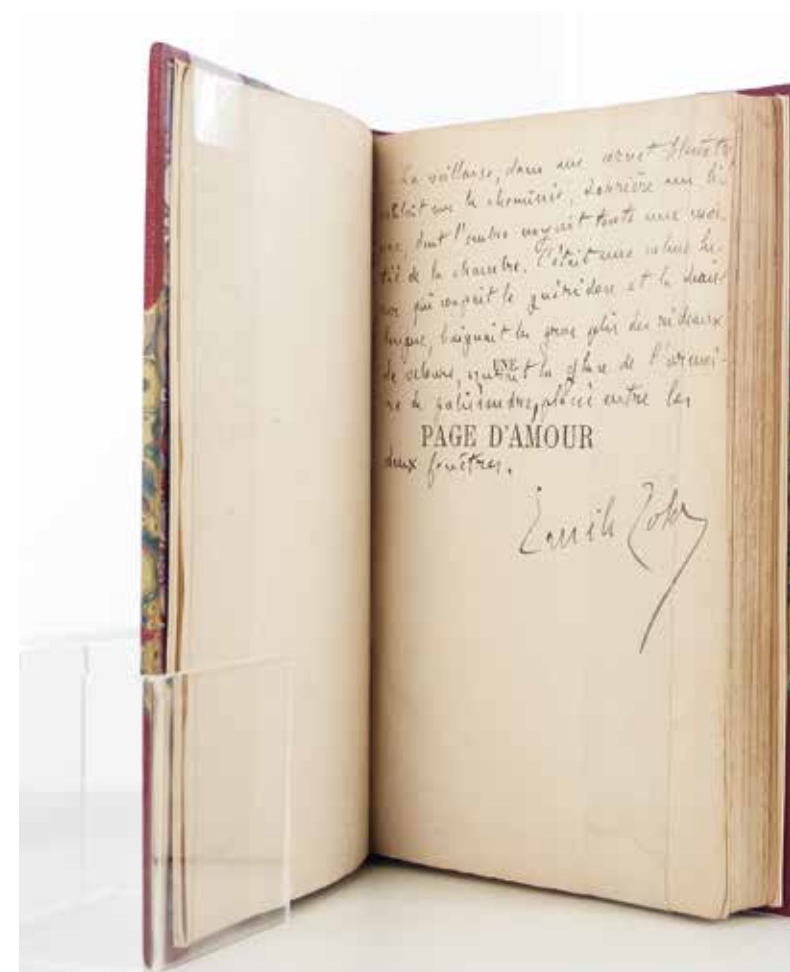 La veilleuse, dans un cornet bleuâtre
brûlait sur la cheminée, derrière un li-
vre, dont l'ombre noyait toute une moi-
tié de la chambre. C'était une calme lu-
eur qui coupait le guéridon et la chaise
longue, baignait les gros plis des rideaux
de velours, azurait la glace de l'armoi-
UNE
re de palissandre, placée entre les
PAGE D'AMOUR
deux fenêtres.
Emile Zola